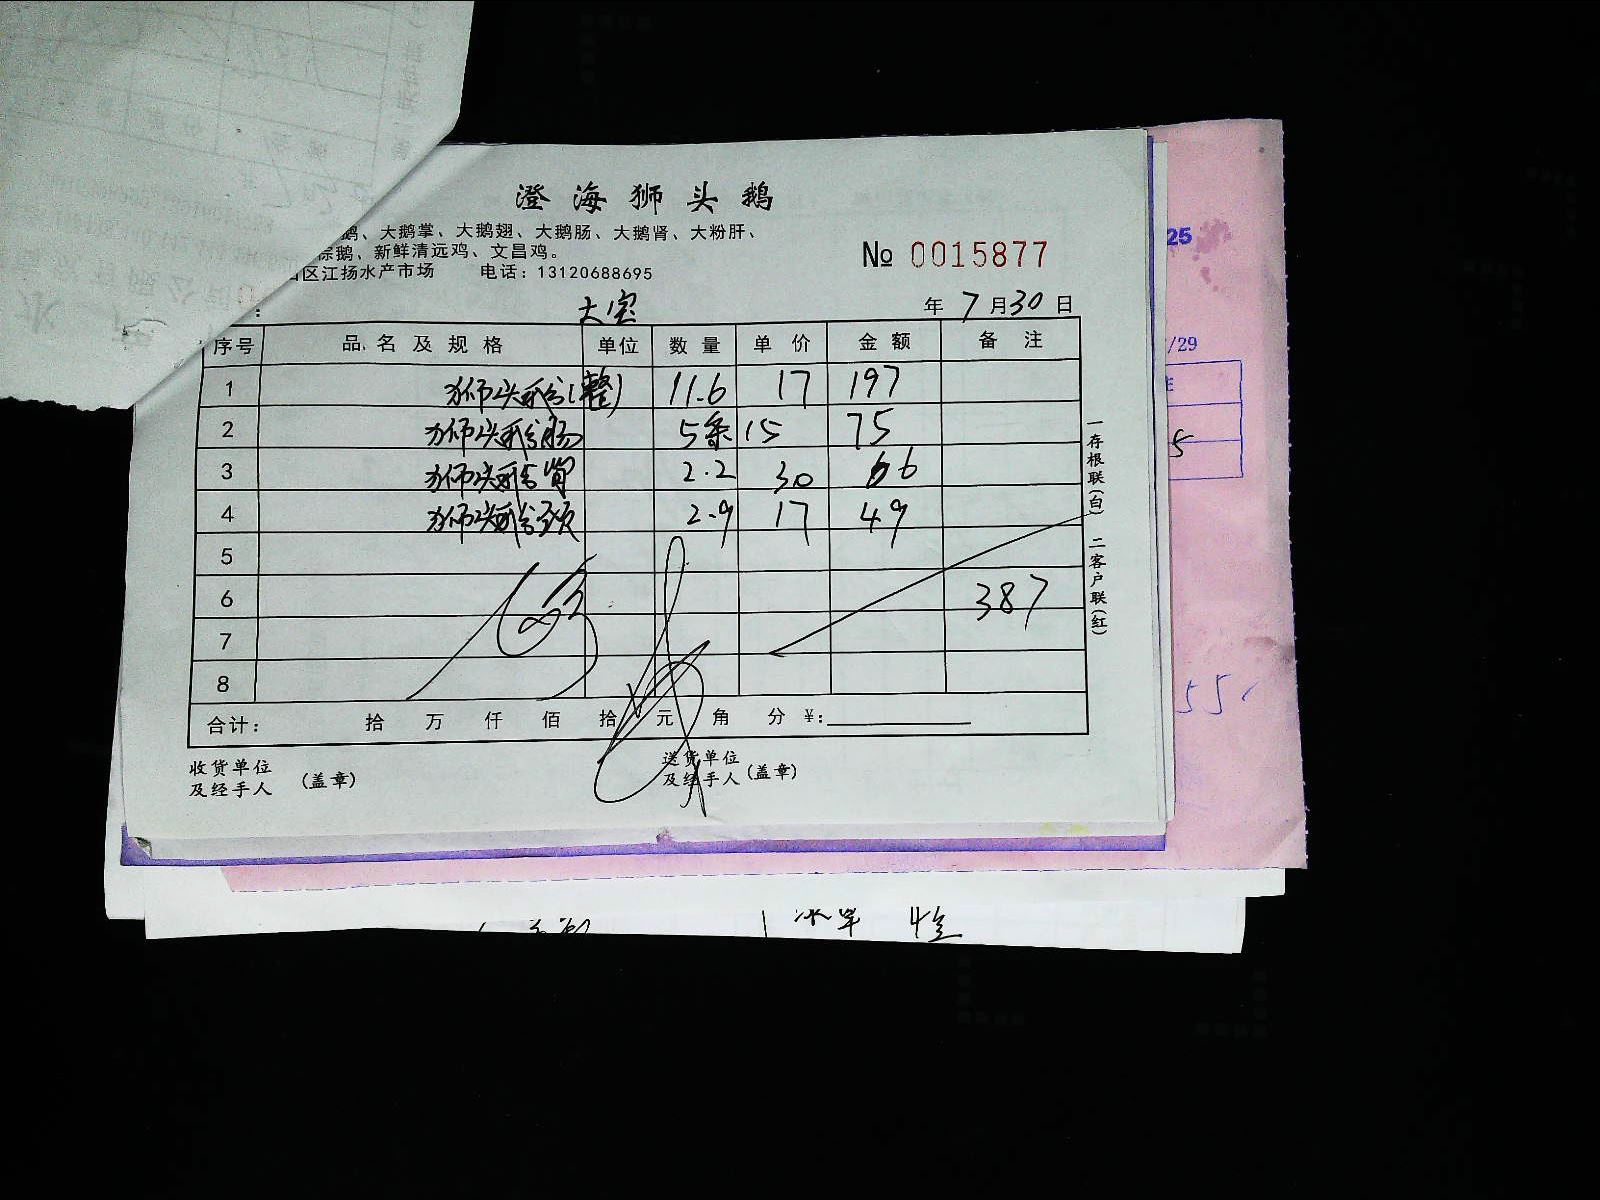 澄海狮头鹅
鹅、大鹅掌、大鹅翅、大鹅肠、大鹅肾、大粉肝、
棕鹅、新鲜清远鸡、文昌鸡。
区江扬水产市场 电话：13120688695
№ 0015877
： 大宝 年 7 月 30 日
序号 品名及规格 单位 数量 单价 金额 备注
1 狮头鹅(整) 11.6 17 197
2 狮头鹅肠 5条 15 75
3 狮头鹅肾 2.2 30 66
4 狮头鹅颈 2.9 17 49
5
6 387
7
8
合计： 拾 万 仟 佰 拾 元 角 分 ¥：
收货单位
及经手人 （盖章）
送货单位
及经手人（盖章）
一存根联（白） 二客户联（红）
25
/29
5
55